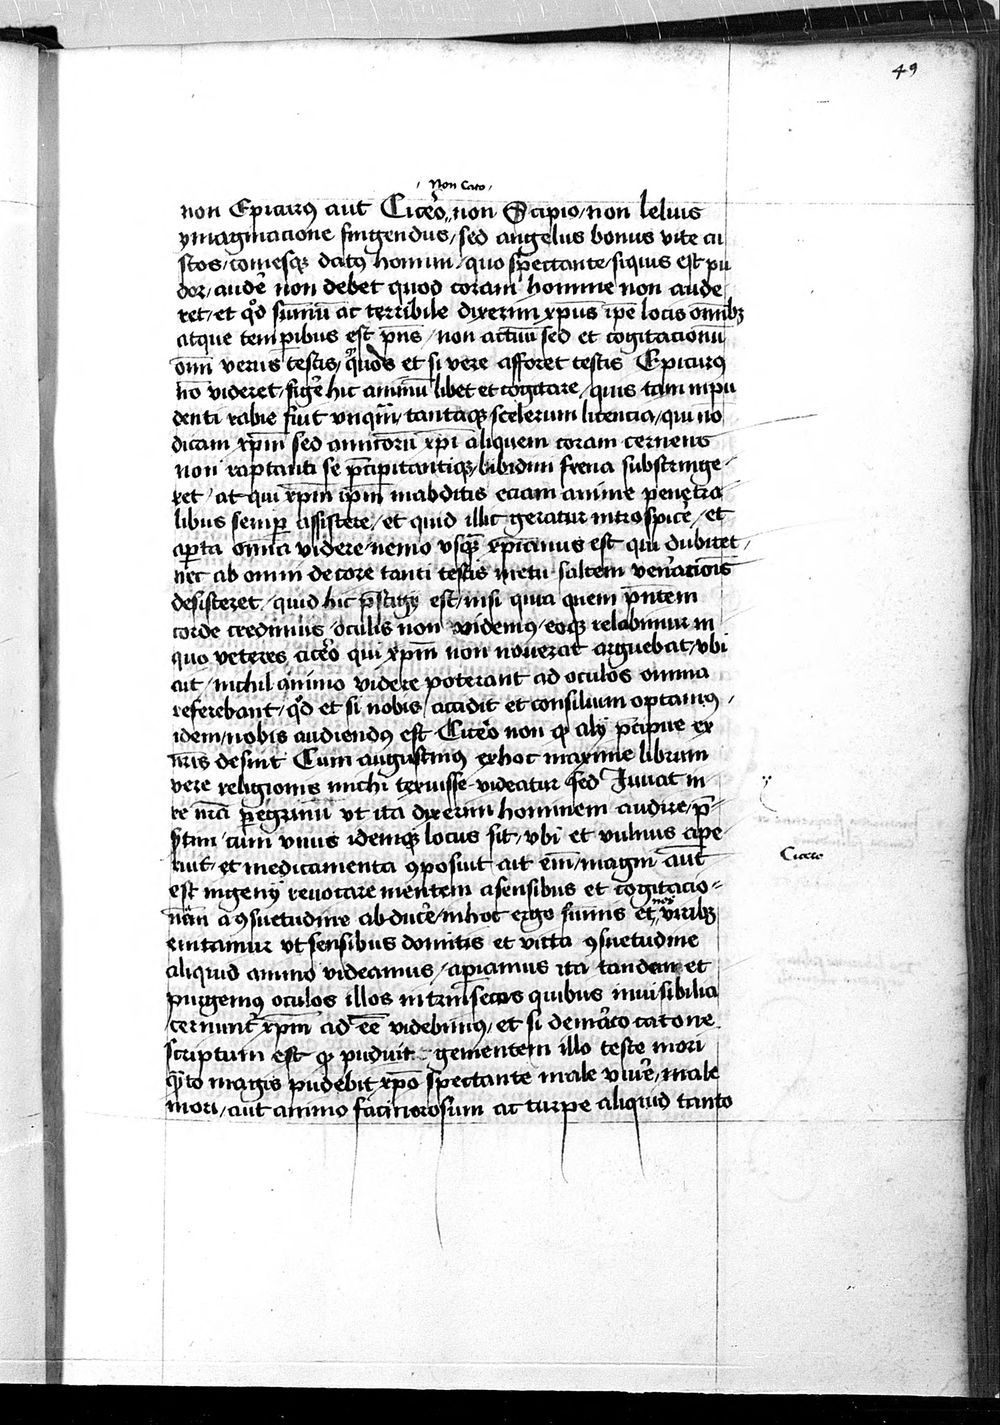 49
non Cato
non Epicurꝰ aut Cicẻo, non Scipio / non leliuis
ymaginacione fingendus / sed angelus bonus vite cu
stos / comesqꝫ datꝰ homini / quo spectante / siquis est pu
dor / audẻ non debet quod coram homine non aude
ret / et qͦd sūmū ac terribile dixerim xp̄us ip̄e locis om̄ibꝫ
atque temporibus est p̄ns / non actuū sed et cogitacionū
om̄i verus testis / quē et si vere afforet testis Epicurꝰ
nō videret / figẻ hic animū libet et cogitare / quis tam inpu
denti rabie fuit vnq̄m / tantaqꝫ scelerum licencia / qui nō
dicam xp̄m sed amicorū xpi aliquem coram cernens
non raptanti se p̄cipitantiqꝫ libidini frena substringe-
ret / at qui xp̄m ip̄m in abditis eciam anime penetra
libus semꝑ assistere / et quid illic geratur introspicẻ / et
aꝑta omnia videre nemo vsqꝫ xp̄ianus est qui dubitet /
nec ab omni decore tanti testis metu saltem ven̄acionis
desisteret / quid hic est / nisi quia quem p̄ntem
corde credimus oculis non videmꝰ / eoqꝫ relabimur in
quo veteres cicẻo qui xp̄m non nouerat arguebat / vbi
ait / nichil animo videre poterant ad oculos omnia
referebant / qͦd et si nobis accidit et consilium optamꝰ /
idem nobis audiendꝰ est Cicẻo non ꝙ alij p̄cipue ex
nr̄is desint Cum augustinus ex hoc maxime librum
vere religionis michi texuisse videatur sed Iuuat in
re nr̄a ꝑegrinū vt ita dixerim hominem audire / p̄-
sertim cum vnus idemqꝫ locus sit / vbi et vulnus ape-
ruit / et medicamenta ꝯposuit ait em̄ / magni aut̄
est ingenij reuocare mentem a sensibus et cogitacio-
nē a ꝯsuetudine abducẻ / in hoc ergo sum̄is et viribꝫ
nos
enitamur vt sensibus domitis et victa ꝯsuetudine
aliquid animo videamus / aꝑiamus ita tandem et
purgemꝰ oculos illos intrinsecos quibus inuisibilia
cernunt̄ xp̄m adēē videbimꝰ / et si de marco catone
scriptum est ꝙ puduit gementem illo teste mori
q̄nto magis pudebit xp̄o spectante male viuẻ / male
mori / aut animo facinorosum ac turpe aliquid tanto
Cicero